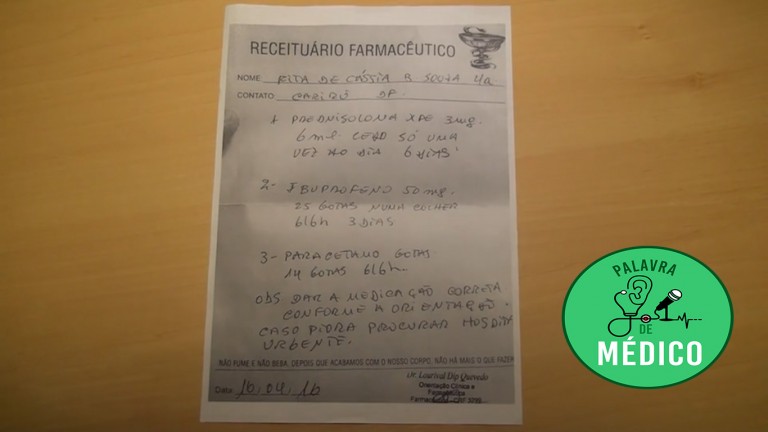 RECEITUÁRIO FARMACÊUTICO
NOME RITA DE CÁSSIA B SOUZA 4a
CONTATO DP.
1 PREDNISOLONA XPE 3mg.
6 ml CEDO SÓ UMA
VEZ AO DIA 6 DIAS
2- IBUPROFENO 50mg.
25 GOTAS NUMA COLHER
6/6h 3 DIAS
3- PARACETAMO GOTAS
14 GOTAS 6/6h
OBS DAR A MEDICAÇÃO CORRETA
CONFORME A ORIENTAÇÃO.
CASO PIORA PROCURAR HOSPITA
URGENTE.
NÃO FUME E NÃO BEBA, DEPOIS QUE ACABAMOS COM O NOSSO CORPO, NÃO HÁ MAIS O QUE FAZER
Data: 16.04.16
Dr. Lourival Dip Quevedo
Orientação Clínica e
PALAVRA
DE
MÉDICO